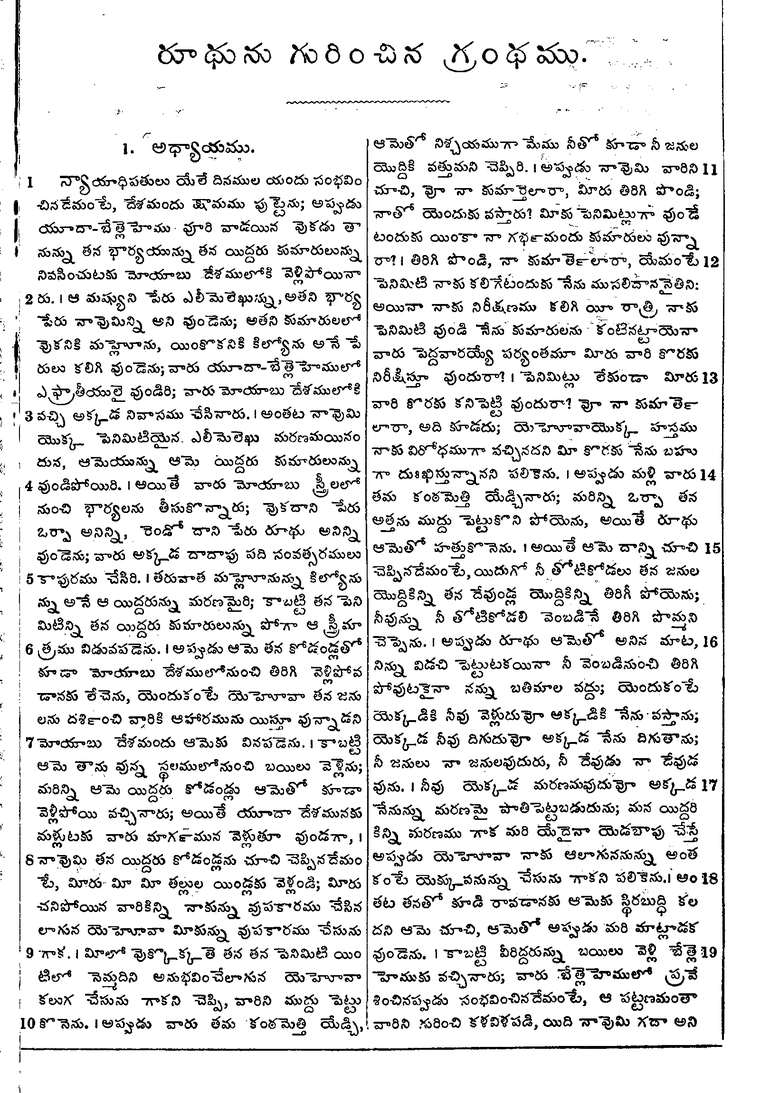 రూథును గురించిన గ్రంథము.
1. అధ్యాయము.
1 న్యాయాధిపతులు యేలే దినముల యందు సంభవిం
చినదేమంటే, దేశమందు క్షామము పుట్టెను; అప్పుడు
యూదా-బేత్లెహేము వూరి వాడయిన వొకడు తా
నున్ను తన భార్యయున్ను తన యిద్దరు కుమారులున్ను
నివసించుటకు మోయాబు దేశములోకి వెళ్లిపోయినా
2 రు. । ఆ మష్యుని పేరు ఎలీమెలెఖున్ను, అతని భార్య
పేరు నావొమిన్ని అని వుండెను; అతని కుమారులలో
వొకనికి మహ్లోను, యింకొకనికి కిల్యోను అనే పే
రులు కలిగి వుండెను; వారు యూదా-బేత్లెహేములో
ఎఫ్రాతీయులై వుండిరి; వారు మోయాబు దేశములోకి
3 వచ్చి అక్కడ నివాసము చేసినారు. । అంతట నావొమి
యొక్క పెనిమిటియైన. ఎలీమెలెఖు మరణమయినం
దున, ఆమెయున్ను ఆమె యిద్దరు కుమారులున్ను
4 వుండిపోయిరి. । ఆయితే వారు మోయాబు స్త్రీలలో
నుంచి భార్యలను తీసుకొన్నారు; వొకదాని పేరు
ఒర్పా అనిన్ని, రెండో దాని పేరు రూథు అనిన్ని
వుండెను; వారు అక్కడ దాదాపు పది సంవత్సరములు
5 కాపురము చేసిరి. । తరువాత మహ్లోనున్ను కిల్యోను
న్ను అనే ఆ యిద్దరున్ను మరణమైరి; కాబట్టి తన పెని
మిటిన్ని తన యిద్దరు కుమారులున్ను పోగా ఆ స్త్రీ మా
6 త్రము విడువపడెను. । అప్పుడు ఆమె తన కోడండ్లతో
కూడా మోయాబు దేశములోనుంచి తిరిగి వెళ్లిపోవ
డానకు లేచెను, యెందుకంటే యెహోవా తన జను
లను దర్శించి వారికి ఆహారమును యిస్తూ వున్నాడని
7 మోయాబు దేశమందు ఆమెకు వినపడెను. । కాబట్టి
ఆమె తాను వున్న స్థలములోనుంచి బయిలు వెళ్లెను;
మరిన్ని ఆమె యిద్దరు కోడండ్లు ఆమెతో కూడా
వెళ్లిపోయి వచ్చినారు; అయితే యూదా దేశమునకు
మళ్లుటకు వారు మార్గమున వెళ్లుతూ వుండగా, ।
8 నావొమి తన యిద్దరు కోడండ్లను చూచి చెప్పినదేమం
టే, మీరు మీ మీ తల్లుల యిండ్లకు వెళ్లండి; మీరు
చనిపోయిన వారికిన్ని నాకున్ను వుపకారము చేసిన
లాగున యెహోవా మీకున్ను వుపకారము చేసును
9 గాక. । మీలో వొక్కొక్కతె తన తన పెనిమిటి యిం
టిలో నెమ్మదిని అనుభవించేలాగున యెహోవా
కలుగ చేసును గాకని చెప్పి, వారిని ముద్దు పెట్టు
10 కొనెను. । అప్పుడు వారు తమ కంఠమెత్తి యేడ్చి,
ఆమెతో నిశ్చయముగా మేము నీతో కూడా నీ జనుల
యొద్దికి వత్తుమని చెప్పిరి. । అప్పుడు నావొమి వారిని 11
చూచి, వో నా కుమార్తెలారా, మీరు తిరిగి పొండి;
నాతో యెందుకు వస్తారు? మీకు పెనిమిట్లుగా వుండే
టందుకు యింకా నా గర్భమందు కుమారులు వున్నా
రా? । తిరిగి పొండి, నా కుమార్తెలారా, యేమంటే 12
పెనిమిటి నాకు కలిగేటందుకు నేను ముసలిదాననైతిని:
అయినా నాకు నిరీక్షణము కలిగి యీ రాత్రి నాకు
పెనిమిటి వుండి నేను కుమారులను కంటినట్టాయెనా
వారు పెద్దవారయ్యే పర్యంతమూ మీరు వారి కొరకు
నిరీక్షిస్తూ వుందురా? । పెనిమిట్లు లేకుండా మీరు 13
వారి కొరకు కనిపెట్టి వుందురా? వో నా కుమార్తె
లారా, అది కూడదు; యెహోవాయొక్క హస్తము
నాకు విరోధముగా వచ్చినదని మీ కొరకు నేను బహు
గా దుఃఖిస్తున్నానని పలికెను. । అప్పుడు మళ్లి వారు 14
తమ కంఠమెత్తి యేడ్చినారు; మరిన్ని ఒర్పా తన
అత్తను ముద్దు పెట్టుకొని పోయెను, అయితే రూథు
ఆమెతో హత్తుకొనెను. । అయితే ఆమె దాన్ని చూచి 15
చెప్పినదేమంటే, యిదుగో నీ తోటికోడలు తన జనుల
యొద్దికిన్ని తన దేవుండ్ల యొద్దికిన్ని తిరిగీ పోయెను;
నీవున్ను నీ తోటికోడలి వెంబడినే తిరిగి పొమ్మని
చెప్పెను. । అప్పుడు రూథు ఆమెతో అనిన మాట, 16
నిన్ను విడచి పెట్టుటకయినా నీ వెంబడినుంచి తిరిగి
పోవుటకైనా నన్ను బతిమాల వద్దు; యెందుకంటే
యెక్కడికి నీవు వెళ్లుదువో ఆక్కడికి నేను వస్తాను;
యెక్కడ నీవు దిగుదువో అక్కడ నేను దిగుతాను;
నీ జనులు నా జనులవుదురు, నీ దేవుడు నా దేవుడ
వును. । నీవు యెక్కడ మరణమవుదువో అక్కడ 17
నేనున్ను మరణమై పాతిపెట్టబడుదును; మన యిద్దరి
కిన్ని మరణము గాక మరి యేదైనా యెడబాపు చేస్తే
అప్పుడు యెహోవా నాకు ఆలాగుననున్ను అంత
కంటే యెక్కువనున్ను చేసును గాకని పలికెను. । అం 18
తట తనతో కూడి రావడానకు ఆమెకు స్థిరబుద్ధి కల
దని ఆమె చూచి, ఆమెతో అప్పుడు మరి మాట్లాడక
వుండెను. । కాబట్టి వీరిద్దరున్ను బయిలు వెళ్లి బేత్లె 19
హేముకు వచ్చినారు; వారు బేత్లెహేములో ప్రవే
శించినప్పుడు సంభవించినదేమంటే, ఆ పట్టణమంతా
వారిని గురించి కళవిళపడి, యిది నావొమి గదా అని